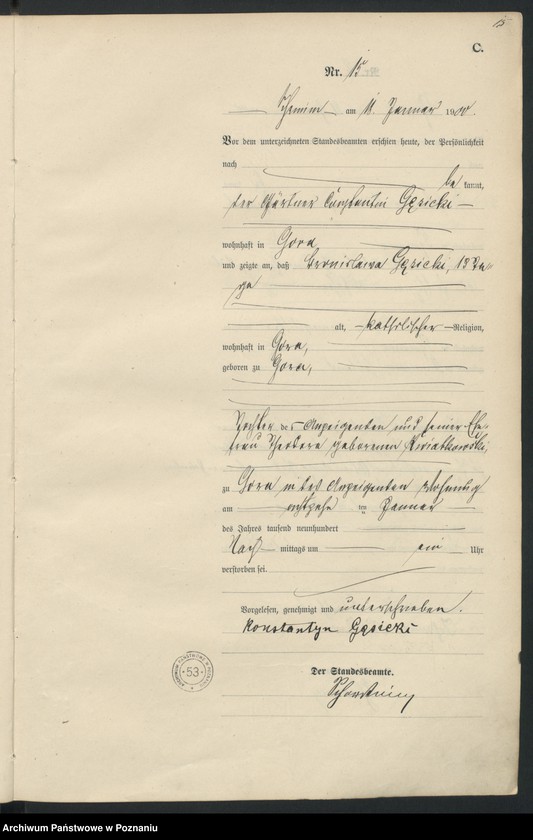 15
C.
Nr. 15
Schrimm am 11. Januar 1900.
Vor dem unterzeichneten Standesbeamten erschien heute, der Persönlichkeit
nach
be kannt,
der Gärtner Constantin Gęsicki
wohnhaft in Gora
und zeigte an, daß Bronislawa Gęsicki, 13 Ta-
ge
alt, katholischer Religion,
wohnhaft in Gora,
geboren zu Gora,
Tochter des Anzeigenden und seiner Ehe-
frau geborenen Kwiatkowski,
zu Gora in des Anzeigenden Wohnung
am ten Januar
des Jahres tausend neunhundert
Nach mittags um ein Uhr
verstorben sei.
Vorgelesen, genehmigt und unterschrieben.
Konstantyn Gęsicki
Der Standesbeamte.
ARCHIWUM PAŃSTWOWE W POZNANIU
53
Archiwum Państwowe w Poznaniu